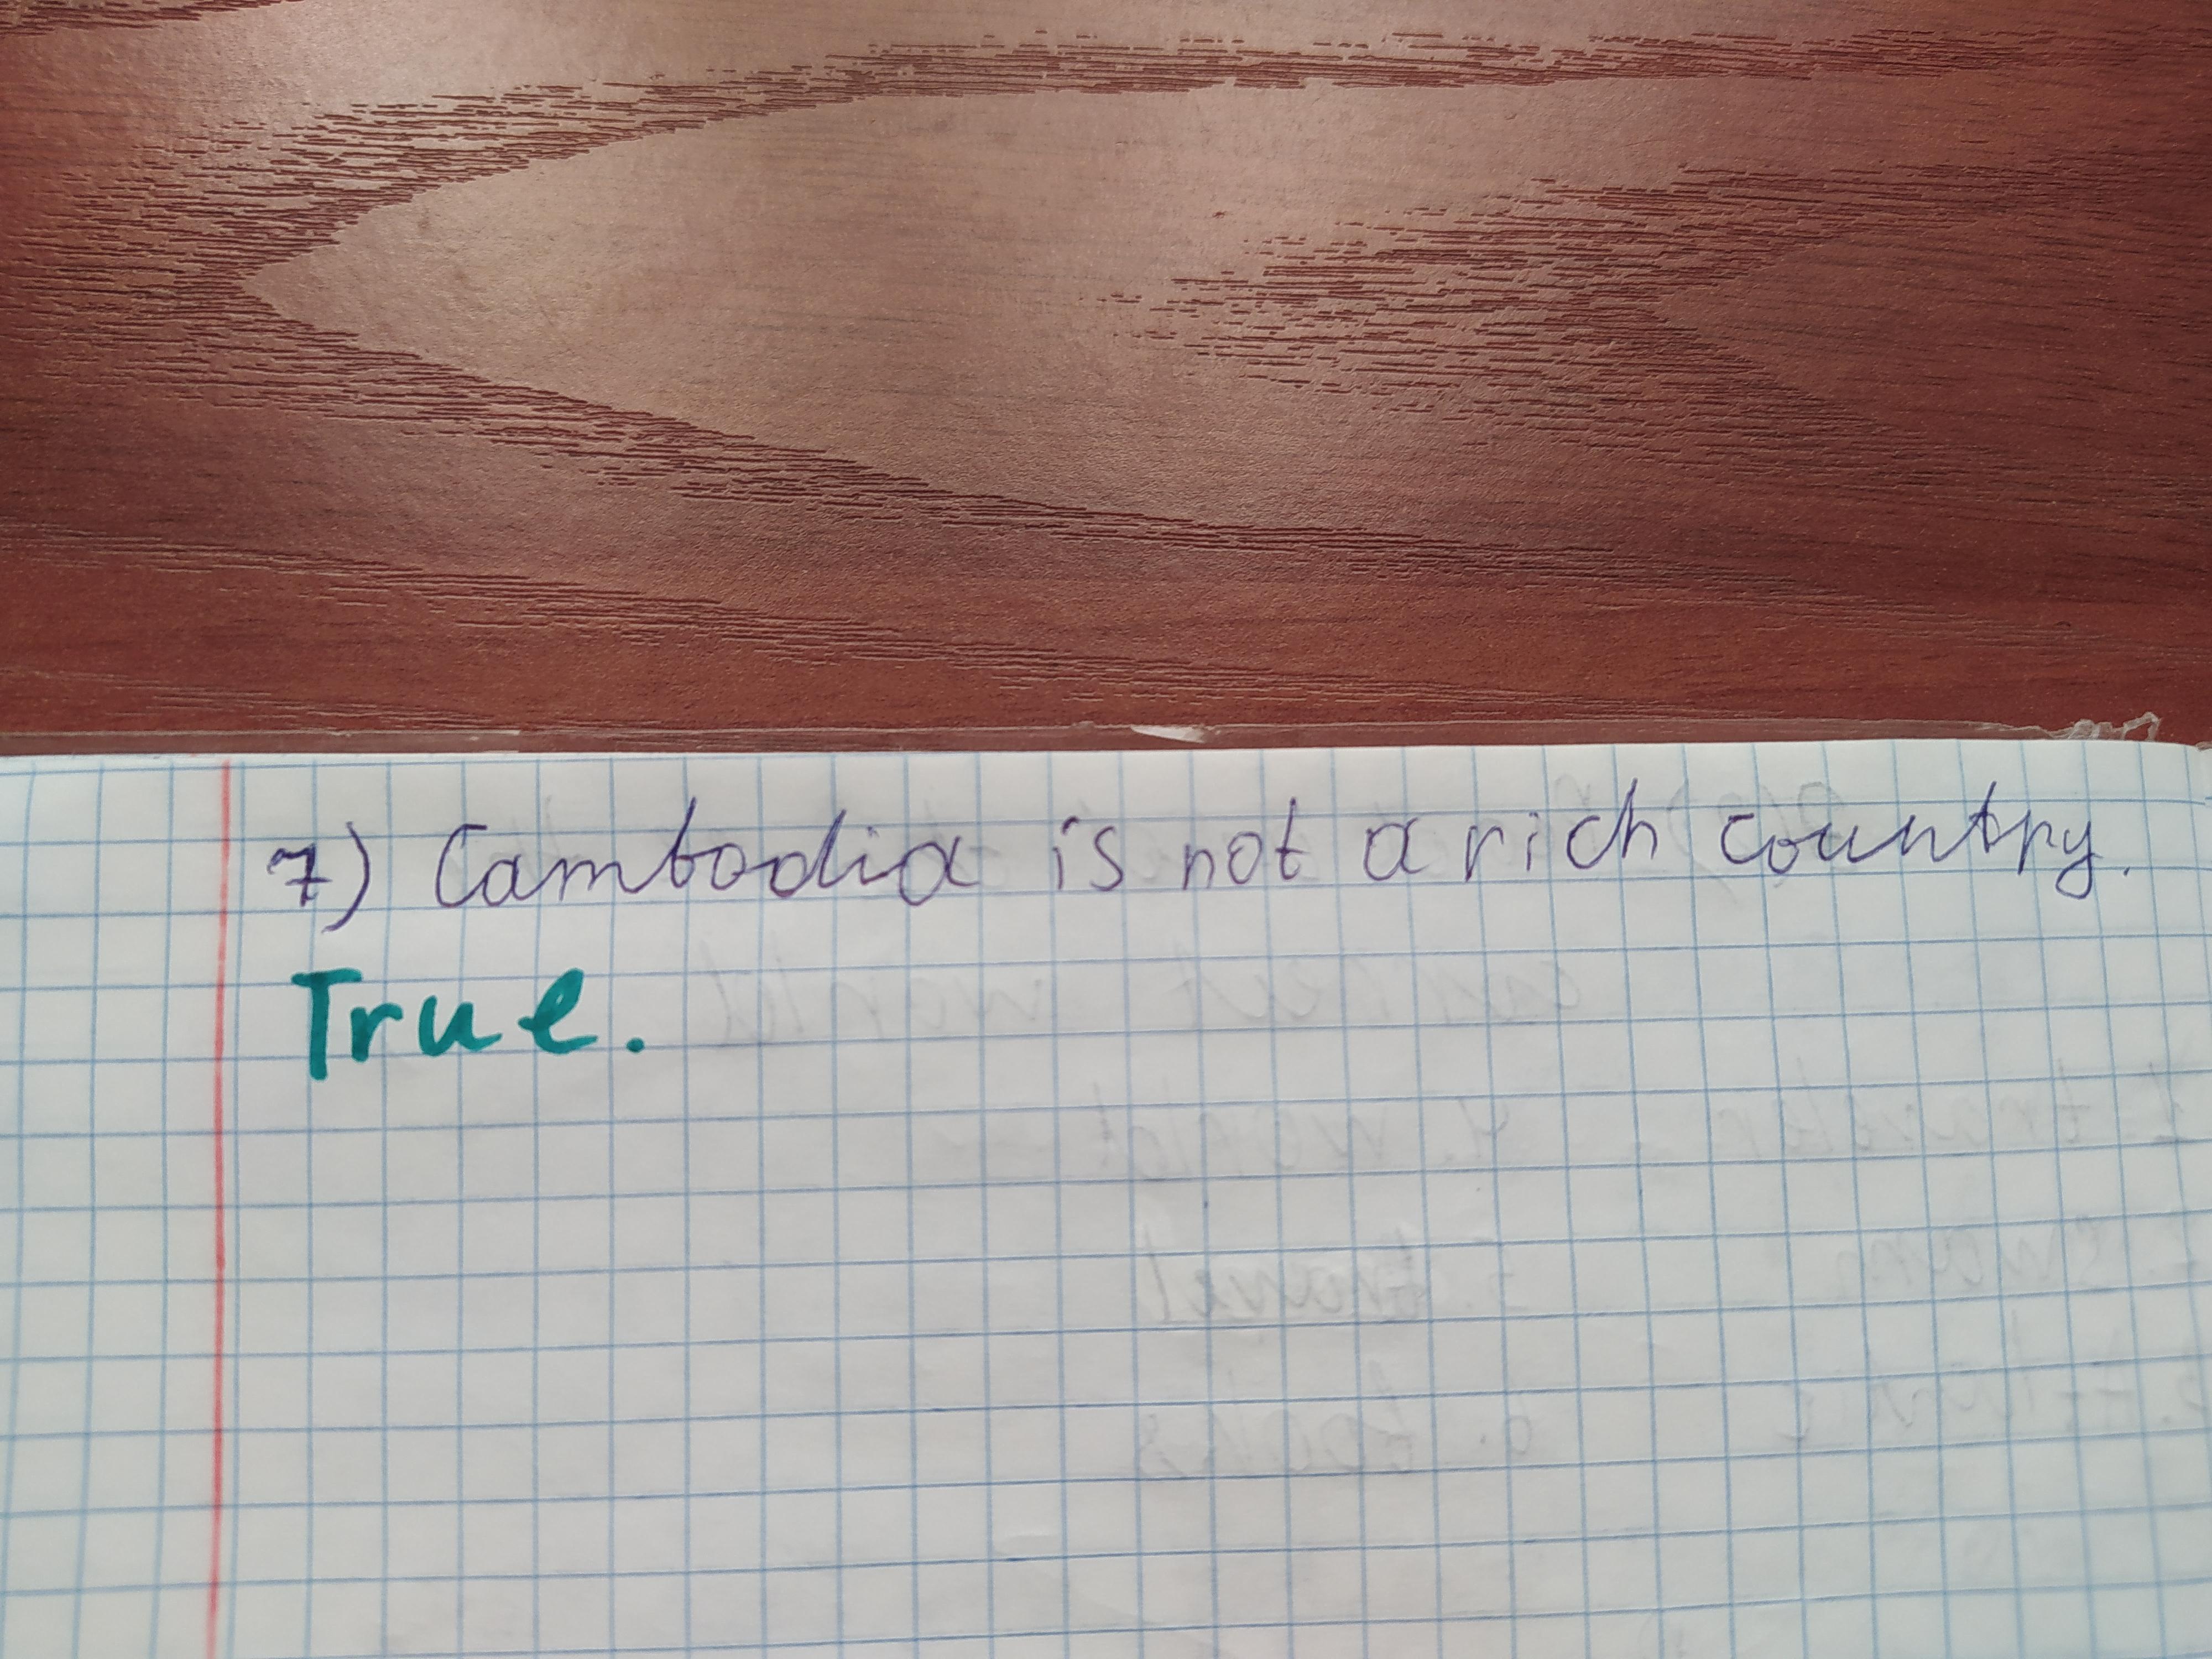 7) Cambodia is not a rich country.
True.